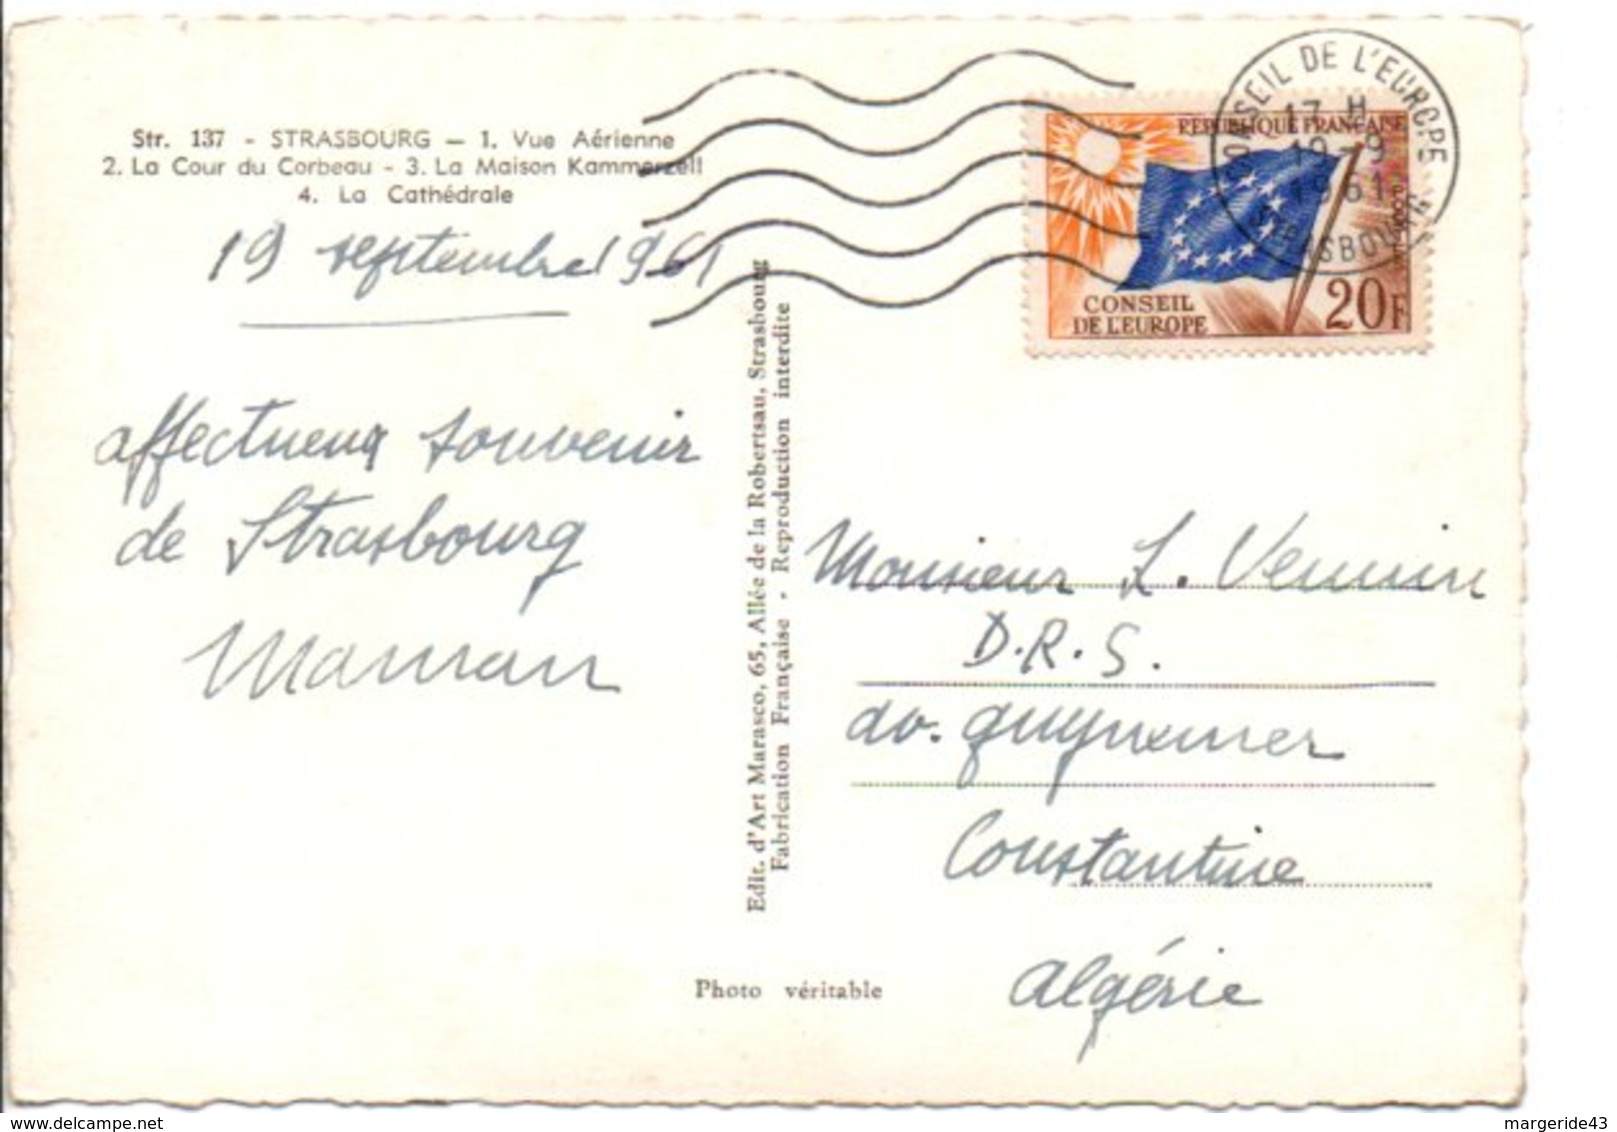 Str. 137 - STRASBOURG — 1. Vue Aérienne
2. La Cour du Corbeau - 3. La Maison Kammerzell
4. La Cathédrale
19 septembre 1961
affectueux souvenir
de Strasbourg
Maman
Edit. d'Art Marasco, 65, Allée de la Robertsau, Strasbourg
Fabrication Française - Reproduction interdite
Photo véritable
CONSEIL DE L'EUROPE
17 H
19-9
1961
STRASBOURG
REPUBLIQUE FRANÇAISE
POSTES
CONSEIL
DE L'EUROPE
20F
Monsieur L. Vennin
D.R.S.
av. guynemer
Constantine
algérie
margeride43